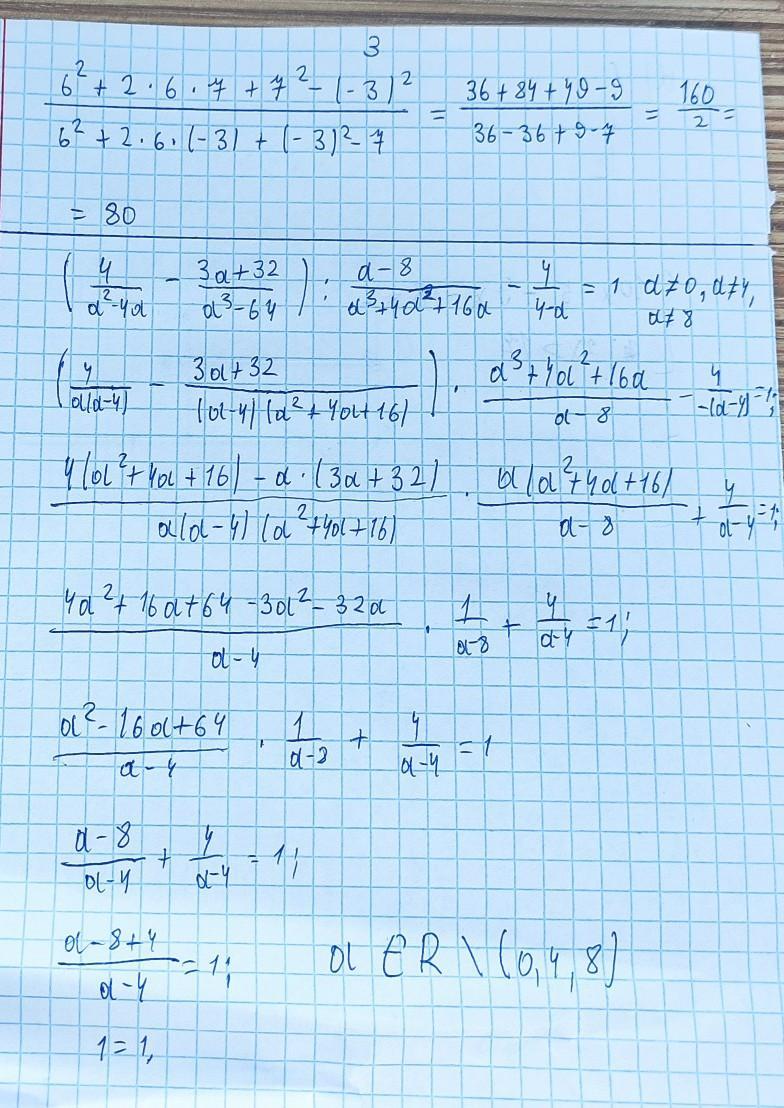 3
(6^2 + 2 · 6 · 7 + 7^2 - (-3)^2) / (6^2 + 2 · 6 · (-3) + (-3)^2 - 7) = (36 + 84 + 49 - 9) / (36 - 36 + 9 - 7) = 160/2 =
= 80
(4/(a^2-4a) - (3a+32)/(a^3-64)) : (a-8)/(a^3+4a^2+16a) - 4/(4-a) = 1 a≠0, a≠4,
a≠8
(4/(a(a-4)) - (3a+32)/((a-4)(a^2+4a+16))) · (a^3+4a^2+16a)/(a-8) - 4/(-(a-4)) = 1;
(4(a^2+4a+16) - a·(3a+32))/(a(a-4)(a^2+4a+16)) · (a(a^2+4a+16))/(a-8) + 4/(a-4) = 1;
(4a^2+16a+64-3a^2-32a)/(a-4) · 1/(a-8) + 4/(a-4) = 1;
(a^2-16a+64)/(a-4) · 1/(a-8) + 4/(a-4) = 1
(a-8)/(a-4) + 4/(a-4) = 1;
(a-8+4)/(a-4) = 1; a ∈ R \ {0, 4, 8}
1 = 1,